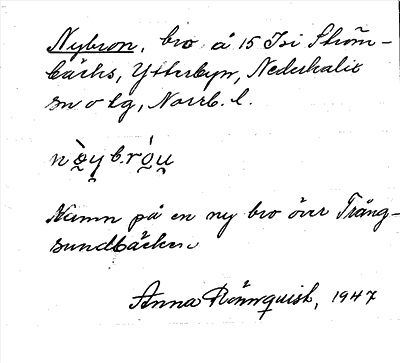 Nybron, bro å 15 Isi Ström-
bäcks, Ytterbyn, Nederkalix
sn o tg, Norrb. l.
nybron
Namn på en ny bro över Trång-
sundbäcken
Anna Rönnquist, 1947